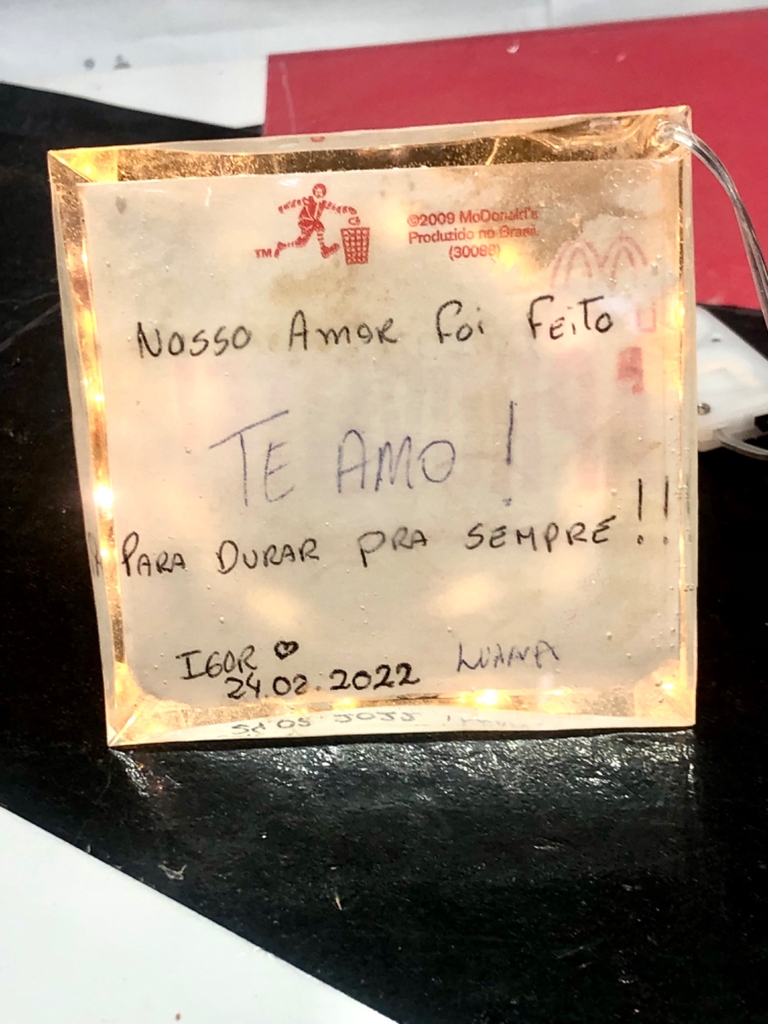 TM
©2009 McDonald's
Produzido no Brasil
(30086)
Nosso Amor foi feito
TE AMO!
PARA DURAR PRA SEMPRE!!
IGOR ♡ LUANA
24.02.2022